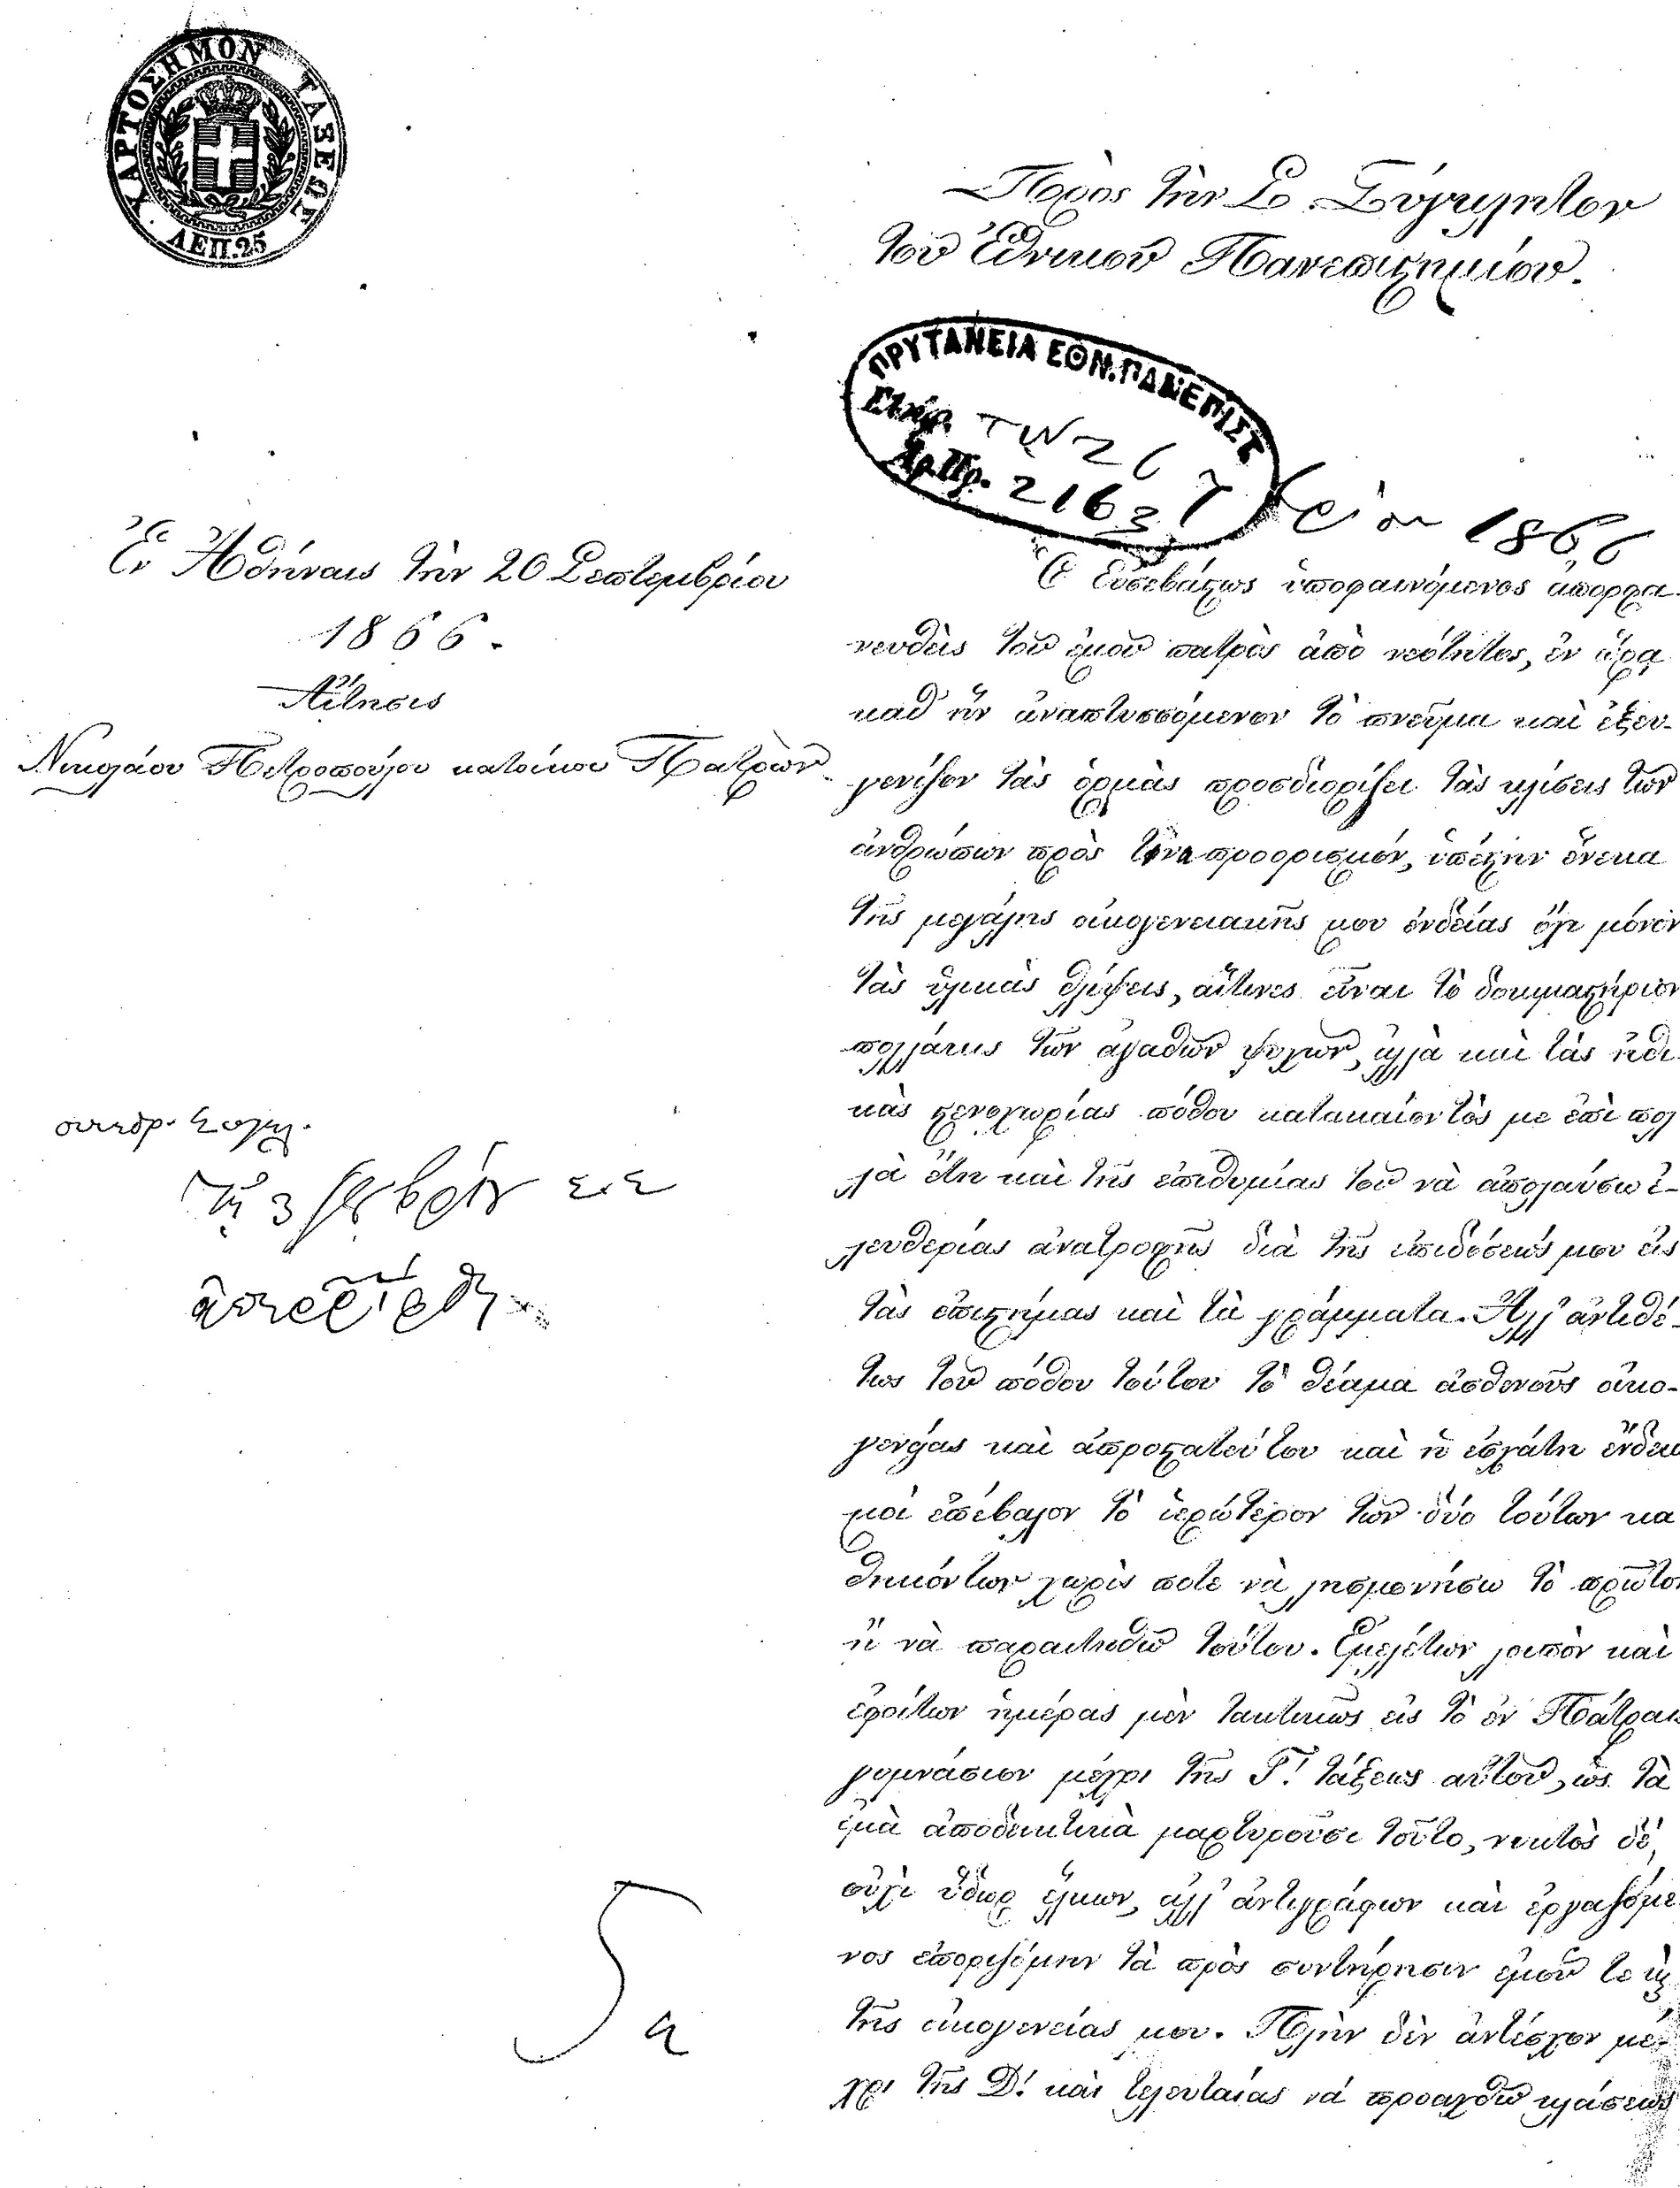 ΧΑΡΤΟΣΗΜΟΝ ΤΑΞΕΩΣ
ΛΕΠ. 25
Πρὸς τὴν Σ. Σύγκλητον
τοῦ Ἐθνικοῦ Πανεπιστημίου.
ΠΡΥΤΑΝΕΙΑ ΕΘΝ. ΠΑΝΕΠΙΣΤ
Ἀρ. Πρ. 2163
1866
Ἐν Ἀθήναις τὴν 20 Σεπτεμβρίου
1866.
Αἴτησις
Νικολάου Πετροπούλου κατοίκου Πατρῶν
συνεδρ. Συγκλ.
τῇ 3
ἀπερρίφθη
Ὁ Εὐσεβάστως ὑποφαινόμενος ἀπορφα-
νευθεὶς τοῦ ἐμοῦ πατρὸς ἀπὸ νεότητος, ἐν ὥρᾳ
καθ' ἣν ἀναπτυσσόμενον τὸ πνεῦμα καὶ ἐξευ-
γενίζον τὰς ὁρμὰς προσδιορίζει τὰς κλίσεις τῶν
ἀνθρώπων πρὸς τινα προορισμόν, ὑπέστην ἕνεκα
τῆς μεγάλης οἰκογενειακῆς μου ἐνδείας ὄχι μόνον
τὰς ὑλικὰς θλίψεις, αἵτινες εἶναι τὸ δοκιμαστήριον
πολλάκις τῶν ἀγαθῶν ψυχῶν, ἀλλὰ καὶ τὰς ἠθι-
κὰς στενοχωρίας πόθου κατακαίοντός με ἐπὶ πολ
λὰ ἔτη καὶ τῆς ἐπιθυμίας τοῦ νὰ ἀπολαύσω ἐ-
λευθερίας ἀνατροφῆς διὰ τῆς ἐπιδόσεώς μου εἰς
τὰς ἐπιστήμας καὶ τὰ γράμματα. Ἀλλ' ἀντιθέ-
τως τοῦ πόθου τούτου τὸ θέαμα ἀσθενοῦς οἰκο-
γενείας καὶ ἀπροστατεύτου καὶ ἡ ἐσχάτη ἔνδεια
μοὶ ἐπέβαλον τὸ ἱερώτερον τῶν δύο τούτων κα
θηκόντων χωρὶς ποτε νὰ λησμονήσω τὸ πρῶτον
ἢ νὰ παραιτηθῶ τούτου. Ἐμελέτων λοιπὸν καὶ
ἐφοίτων ἡμέρας μὲν τακτικῶς εἰς τὸ ἐν Πάτραις
γυμνάσιον μέχρι τῆς Γ'. τάξεως αὐτοῦ, ὡς τὰ
ἐμὰ ἀποδεικτικὰ μαρτυροῦσι τοῦτο, νυκτὸς δὲ,
οὐχὶ ὕδωρ ἕλκων, ἀλλ' ἀντιγράφων καὶ ἐργαζόμε
νος ἐποριζόμην τὰ πρὸς συντήρησιν ἐμοῦ τε κ̀
τῆς οἰκογενείας μου. Πλὴν δὲν ἀντέσχον μέ-
χρι τῆς Δ'. καὶ τελευταίας νὰ προαχθῶ κλάσεως